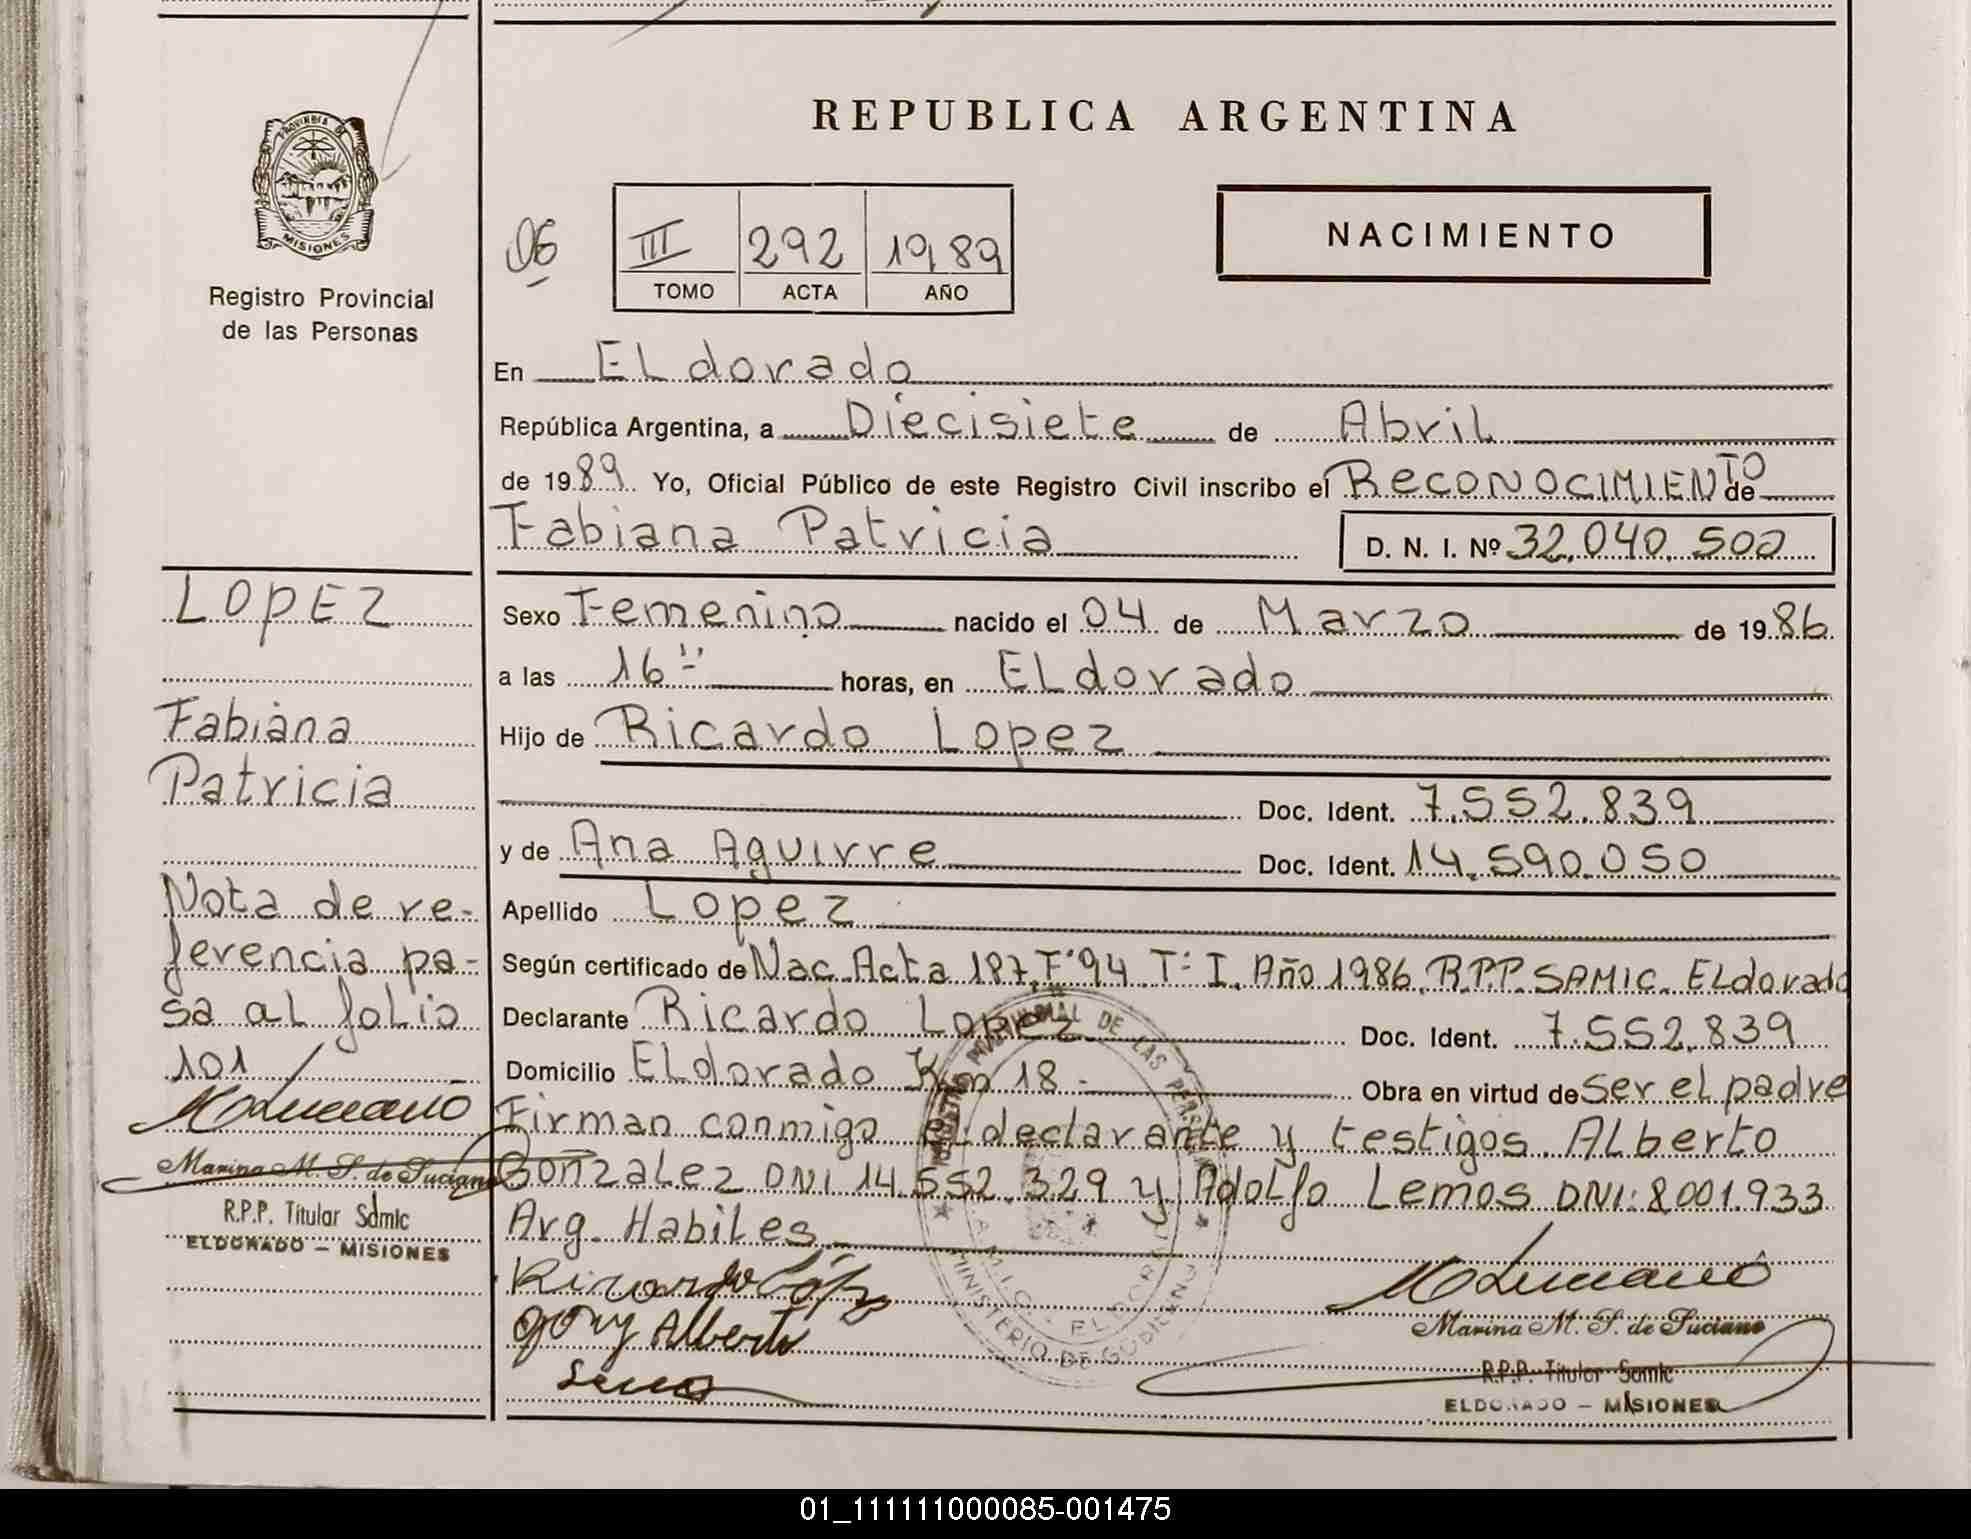 PROVINCIA DE
MISIONES
Registro Provincial
de las Personas
LOPEZ
Fabiana
Patricia
Nota de re-
ferencia pa-
sa al folio
101
Marina M. S. de Suciano
R.P.P. Titular Samic
ELDORADO - MISIONES
REPUBLICA ARGENTINA
06
III 292 1989
TOMO ACTA AÑO
NACIMIENTO
En ELdorado
República Argentina, a Diecisiete de Abril
de 1989 Yo, Oficial Público de este Registro Civil inscribo el RECONOCIMIENTO de
Fabiana Patricia D. N. I. Nº 32.040.502
Sexo Femenino nacido el 04 de Marzo de 1986
a las 16 horas, en ELdorado
Hijo de Ricardo Lopez
Doc. Ident. 7.552.839
y de Ana Aguirre Doc. Ident. 14.590.050
Apellido Lopez
Según certificado de Nac. Acta 187, Fº94 Tº I. Año 1986. R.P.P. SAMIC. ELdorado
Declarante Ricardo Lopez Doc. Ident. 7.552.839
Domicilio ELdorado Km 18 - Obra en virtud de Ser el padre
Firman conmigo el declarante y testigos. Alberto
Gonzalez DNI 14.552.329 y Adolfo Lemos DNI: 8001.933
Arg. Habiles
Ricardo López
Alberto
REGISTRO PROVINCIAL DE LAS PERSONAS
S.A.M.I.C. ELDORADO
MINISTERIO DE GOBIERNO
Marina M. S. de Suciano
R.P.P. Titular Samic
ELDORADO - MISIONES
01_111111000085-001475